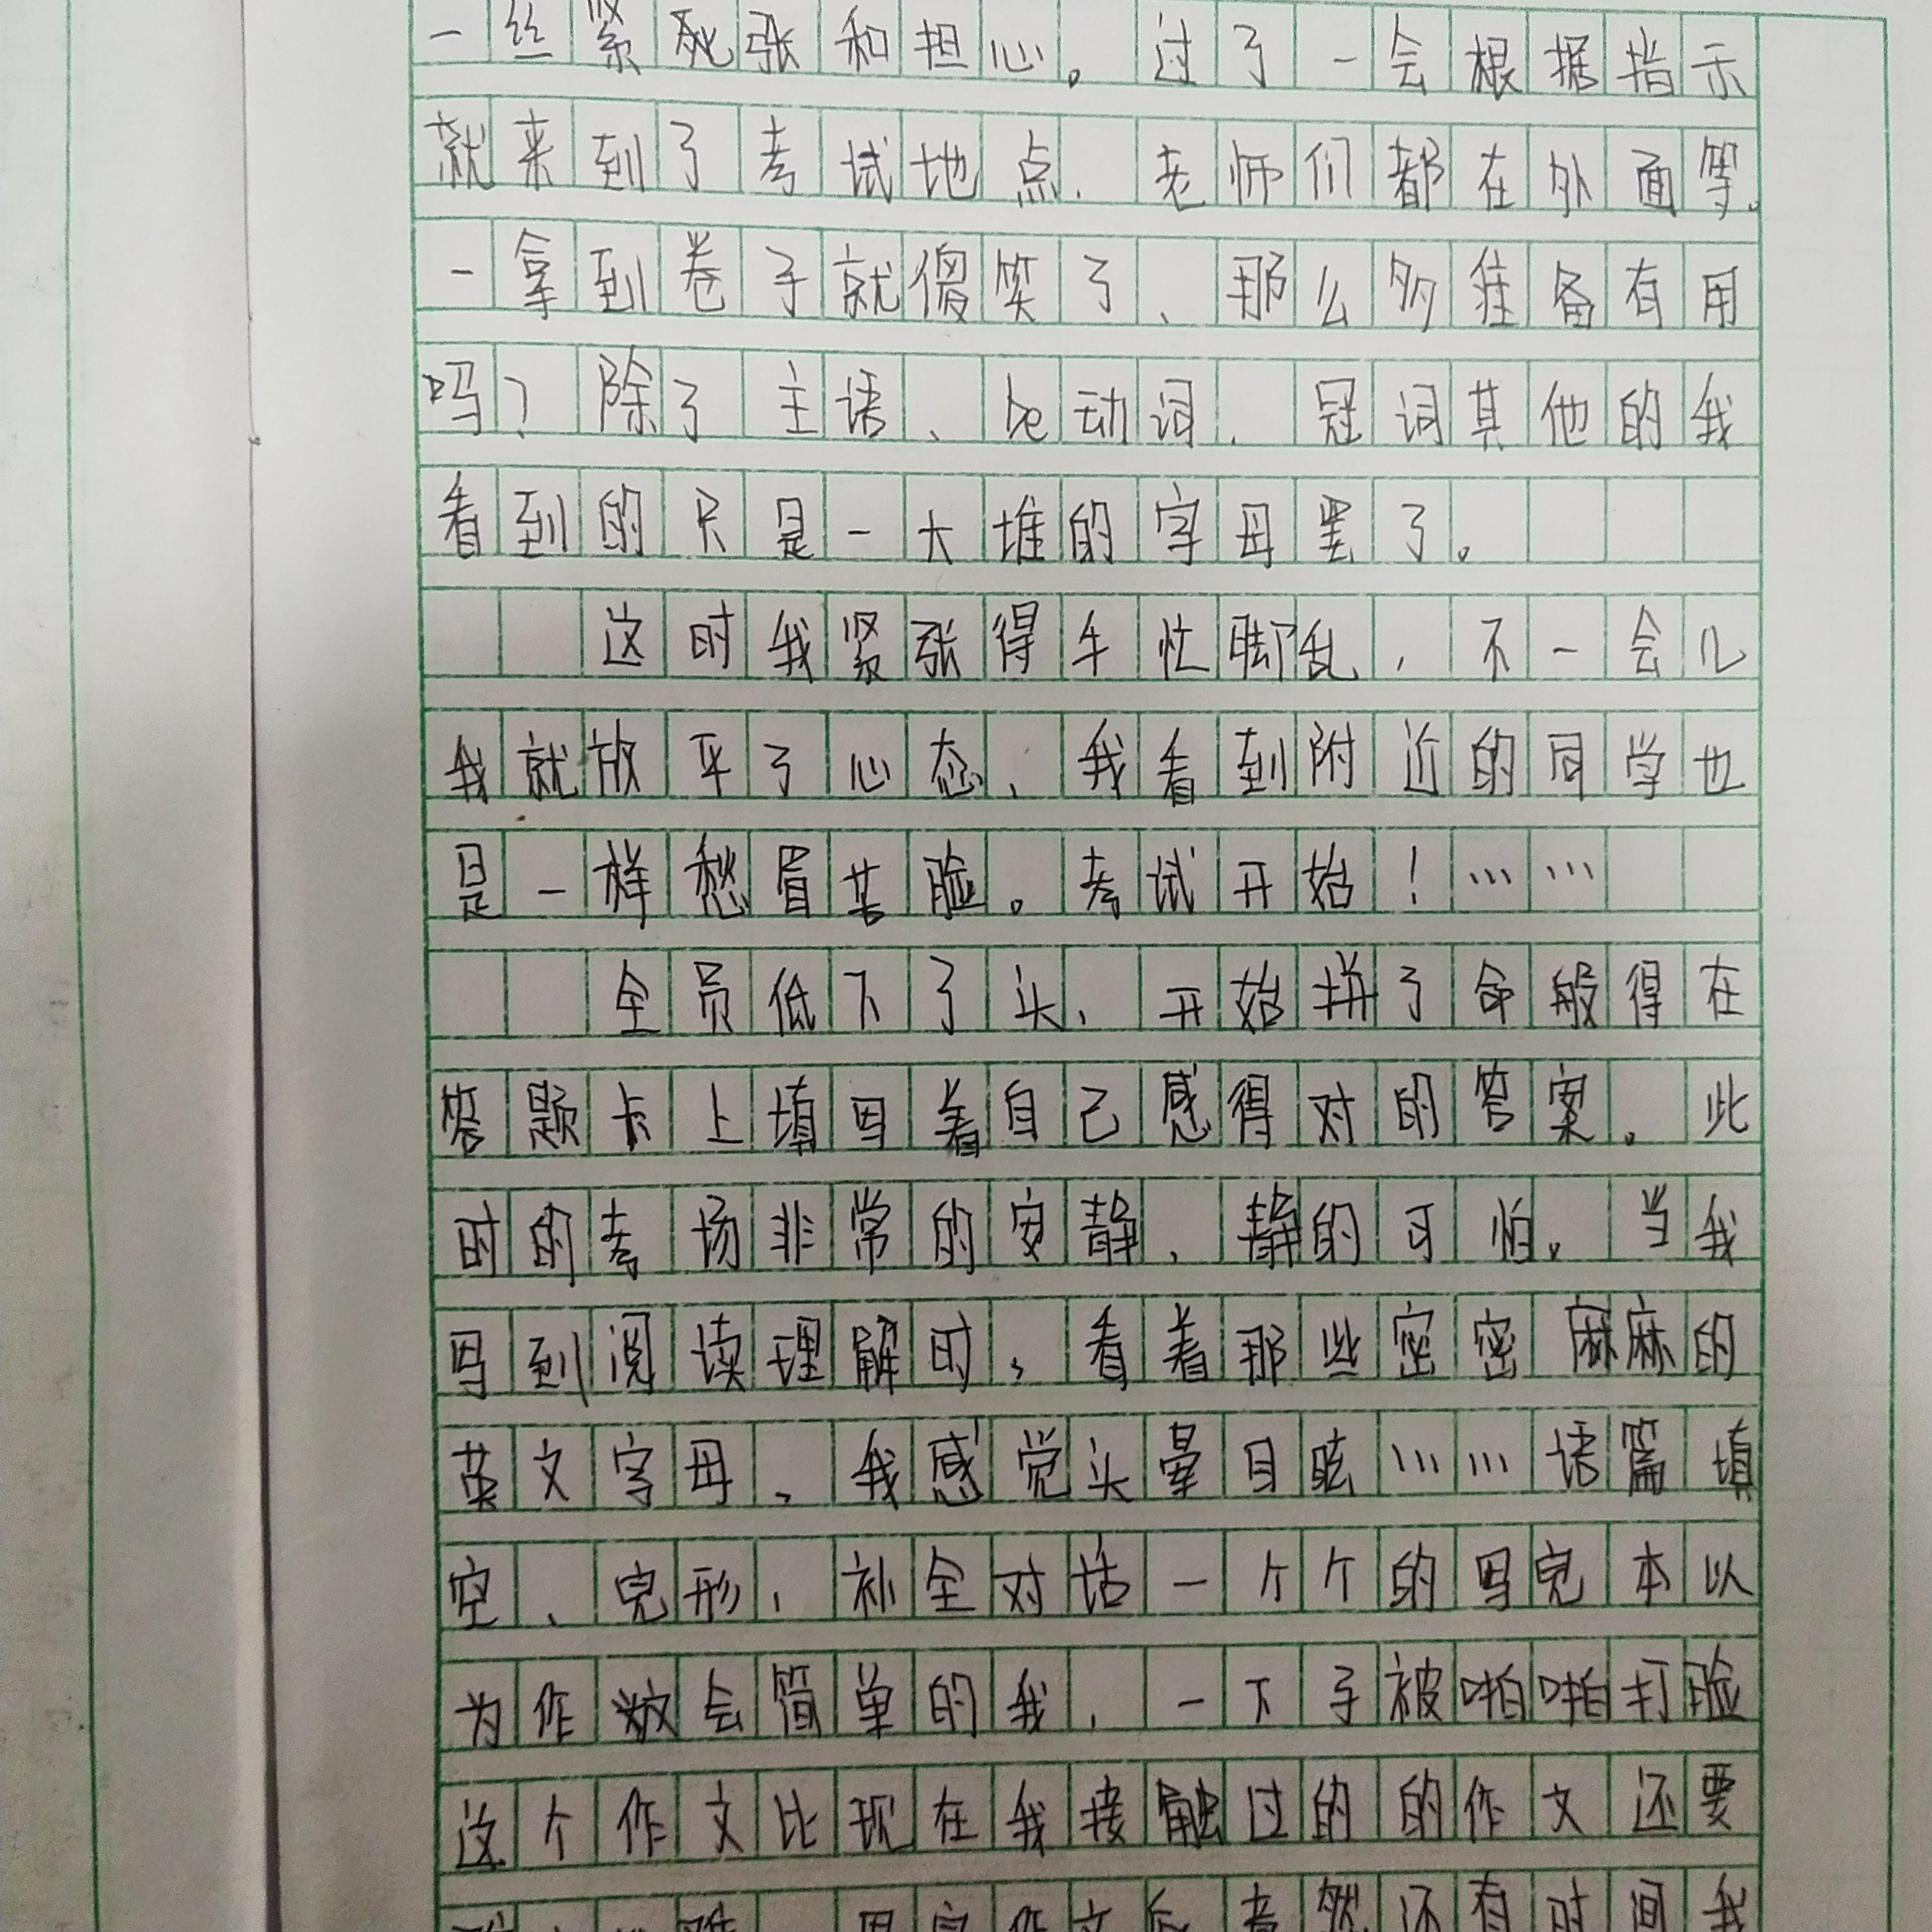 一丝紧张和担心。过了一会根据指示
就来到了考试地点，老师们都在外面等。
一拿到卷子就傻笑了，那么多准备有用
吗？除了主语、be动词、冠词其他的我
看到的只是一大堆的字母罢了。
这时我紧张得手忙脚乱，不一会儿
我就放平了心态，我看到附近的同学也
是一样愁眉苦脸。考试开始！……
全员低下了头，开始拼了命般得在
答题卡上填写着自己感得对的答案。此
时的考场非常的安静，静的可怕。当我
写到阅读理解时，看着那些密密麻麻的
英文字母，我感觉头晕目眩……语篇填
空、完形，补全对话一个个的写完本以
为作文会简单的我，一下子被啪啪打脸
这个作文比现在我接触过的的作文还要
写完作文后竟然还有时间我